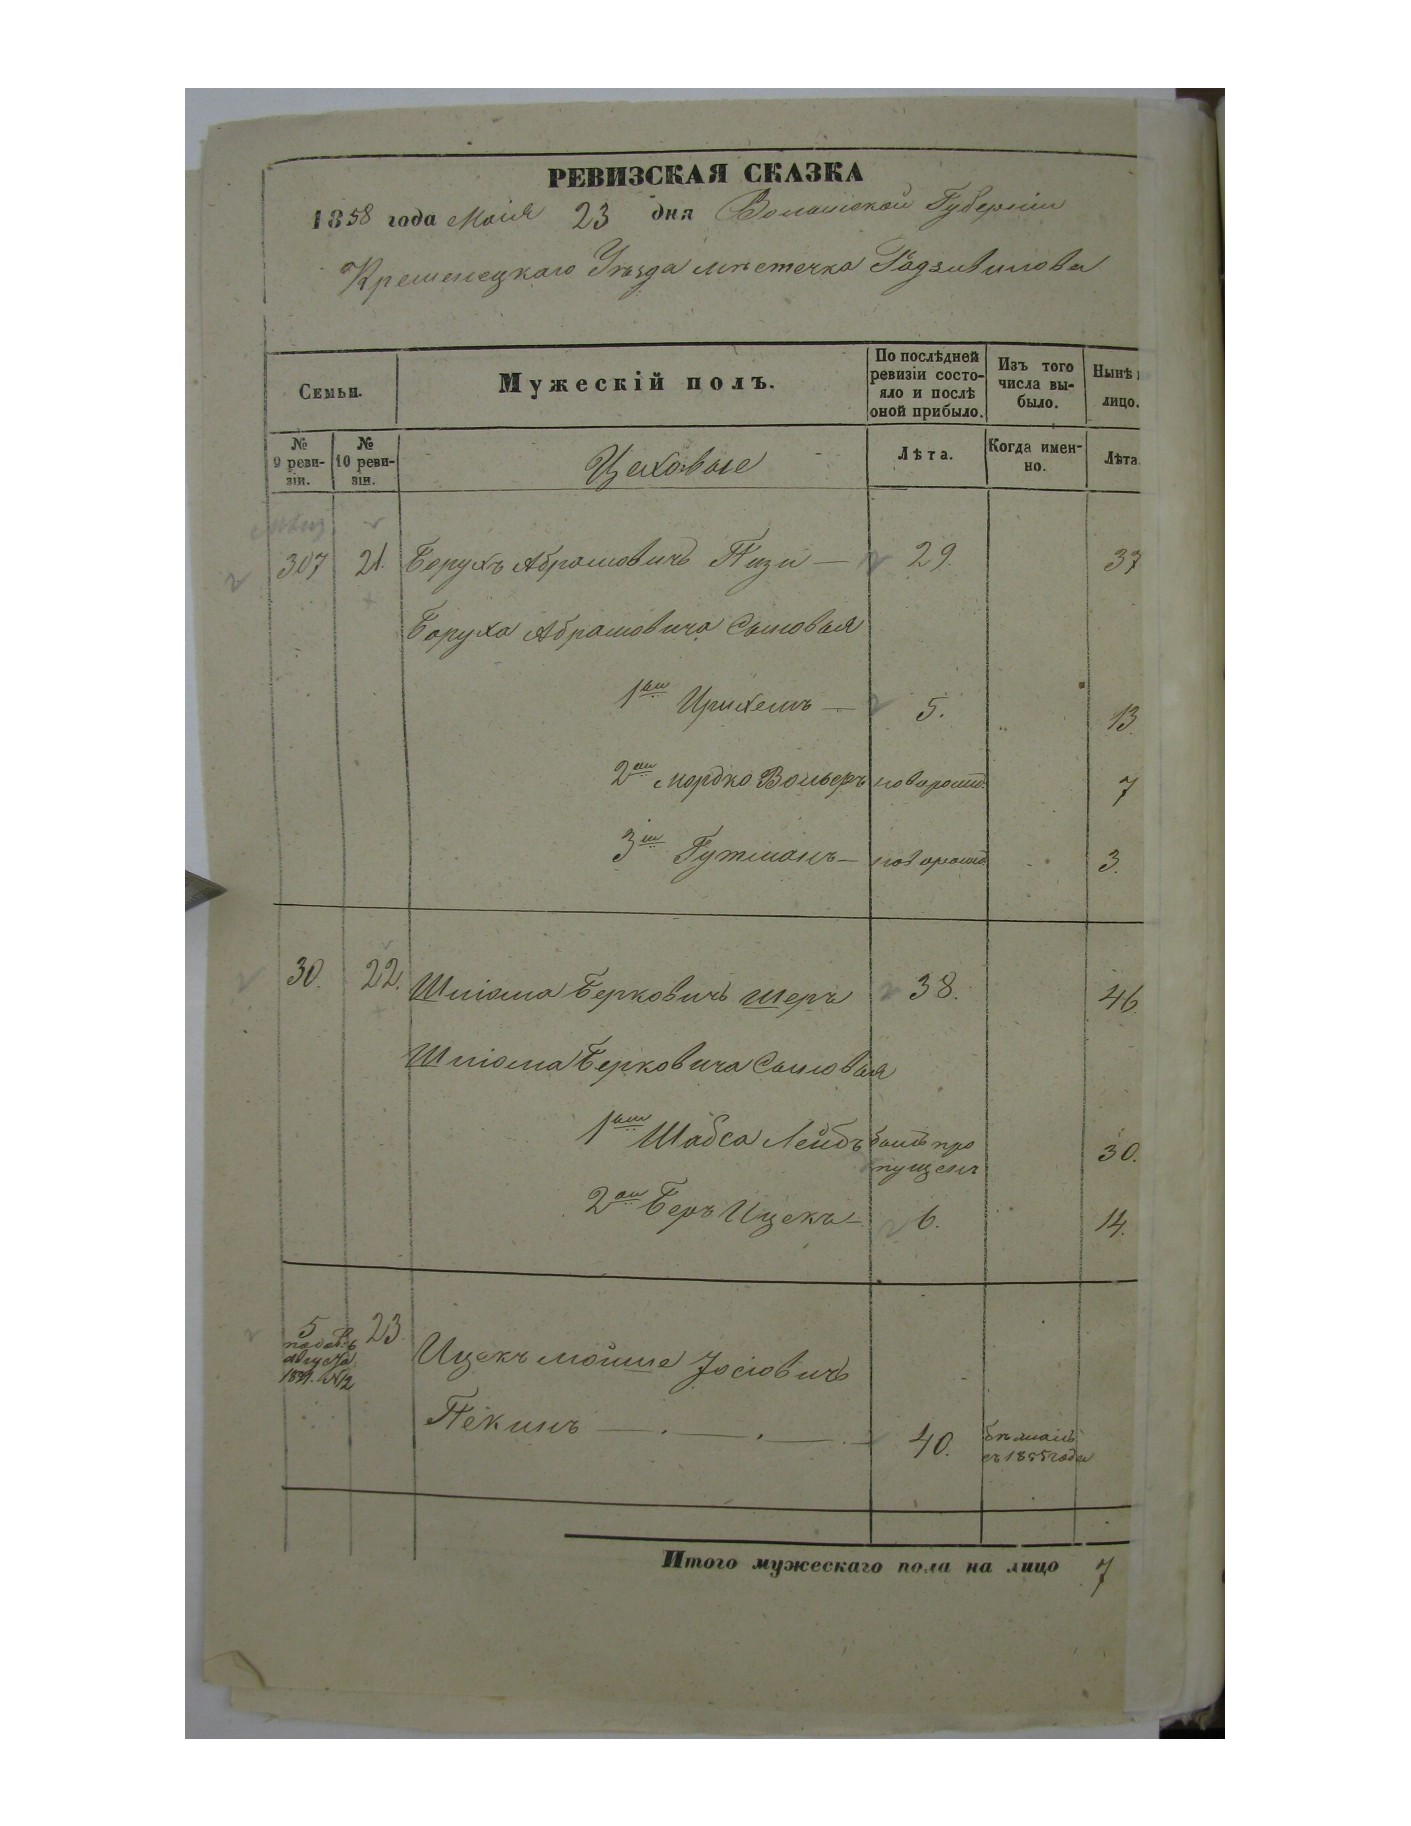 РЕВИЗСКАЯ СКАЗКА
1858 года Маія 23 дня Волынской Губерніи
Кременецкаго Уѣзда мѣстечка Радзивилова
Семьи.
Мужескій полъ.
По послѣдней ревизіи состояло и послѣ оной прибыло.
Изъ того числа выбыло.
Нынѣ
лицо.
№ 9 ревизіи.
№ 10 ревизіи.
Цеховые
Лѣта.
Когда именно.
Лѣта.
307 21. Борухъ Абрамовичъ Пизи — 29. 37
Боруха Абрамовича Сыновья
1ый — 5. 13
2ой Мордко Вольфъ новорожд. 7
3й Гутманъ — новорожд. 3.
30. 22. Шліома Берковичъ Шеръ 38. 46
Шліома Берковича Сыновья
1ый Шабса Лейбъ былъ про 30.
пущенъ
2ой Беръ Ицекъ — 6. 14.
5 23. Ицекъ Мойше Іосіовичъ
августа
Пекинъ — . — . — 40.
съ 1855 года
Итого мужескаго пола на лицо 7